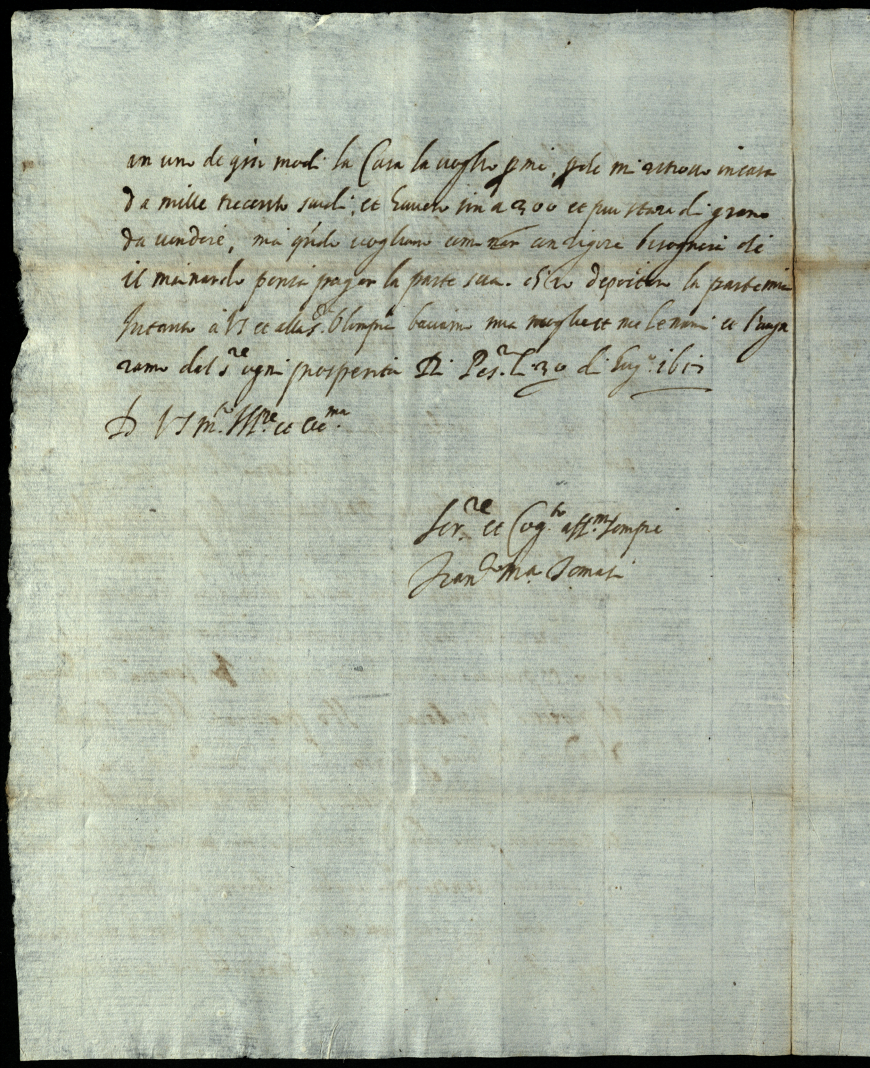 in uno de q.sti modi la Casa la voglio p me, p.che mi ritrovo in casa
da mille trecento scudi, et havero sin a 300 et piu stara di grano
da vendere, ma q.ndo vogliono caminar con rigore bisognerà che
il mainardo pensi pagar la parte sua. et io depositar la parte mia
Intanto à VS et alla S.ra Olimpia baciamo mia moglie et me le mani et l'auga
ramo dal S.re ogni prosperità Di Pes.ro li 30 di lug.o 1617
D VS m.to Ill.re et Ecc.ma
Ser.re et Cog.to aff.mo sempre
Fran.co M.a Tomasi